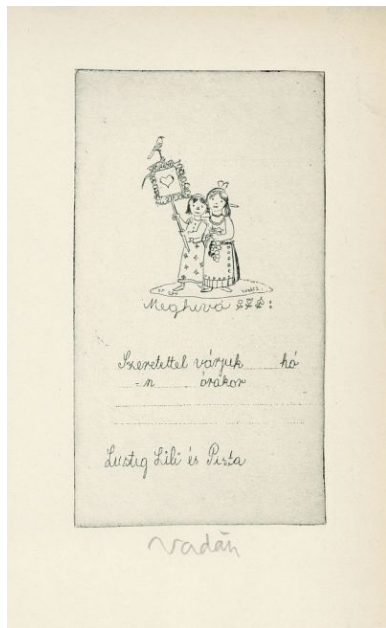 Meghívó
Szeretettel várjuk hó
-n órakor
Lustig Lili és Pista
Vadász